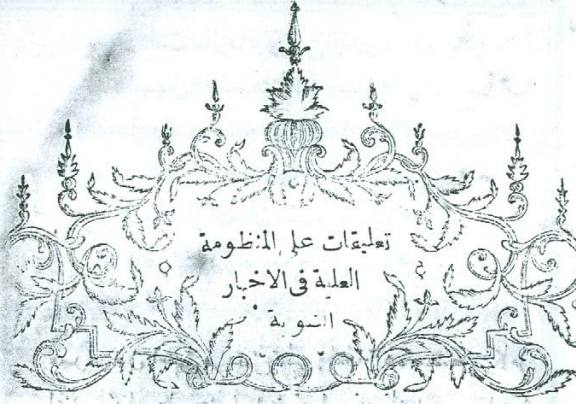 تعليقات على المنظومة
العلية فى الاخبار
النبوية